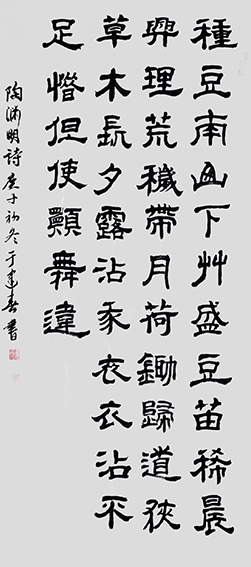 種豆南山下艸盛豆苗稀晨
興理荒穢帶月荷鋤歸道狹
草木長夕露沾我衣衣沾不
足惜但使願無違
陶渊明詩庚子初冬于建春書